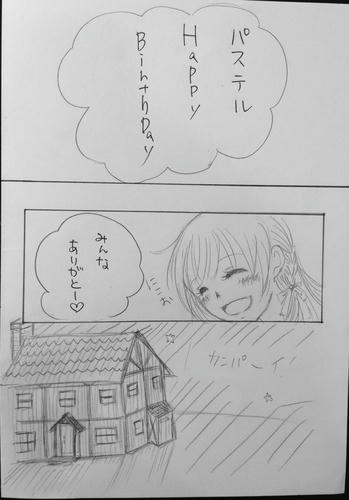 パステル
Happy
BirthDay
みんな
ありがとー♡
にこぉ
カンパーイ!